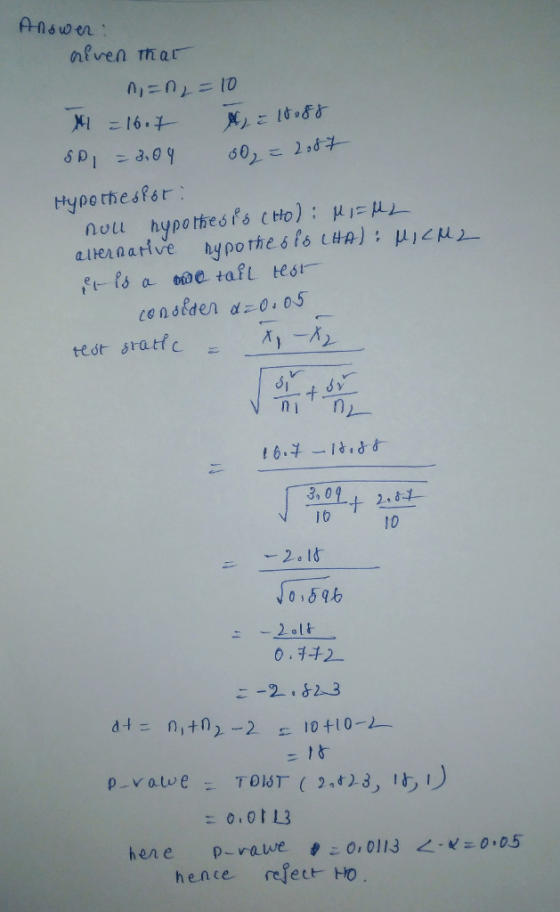 Answer:
Given that
n₁ = n₂ = 10
x̄1 = 16.7 x̄₂ = 18.88
SD₁ = 3.09 SD₂ = 2.87
Hypothesist:
null hypothesis (H0): μ₁ = μ₂
alternative hypothesis (HA): μ₁ < μ₂
it is a one tail test
consider α = 0.05
test static = x̄₁ - x̄₂
√ s₁² / n₁ + s₂² / n₂
= 16.7 - 18.88
√ 3.09 / 10 + 2.87 / 10
= -2.18
√0.596
= -2.18
0.772
= -2.823
df = n₁ + n₂ - 2 = 10+10-2
= 18
P-value = TDIST (2.823, 18, 1)
= 0.0113
here p-value = 0.0113 < α = 0.05
hence reject H0.